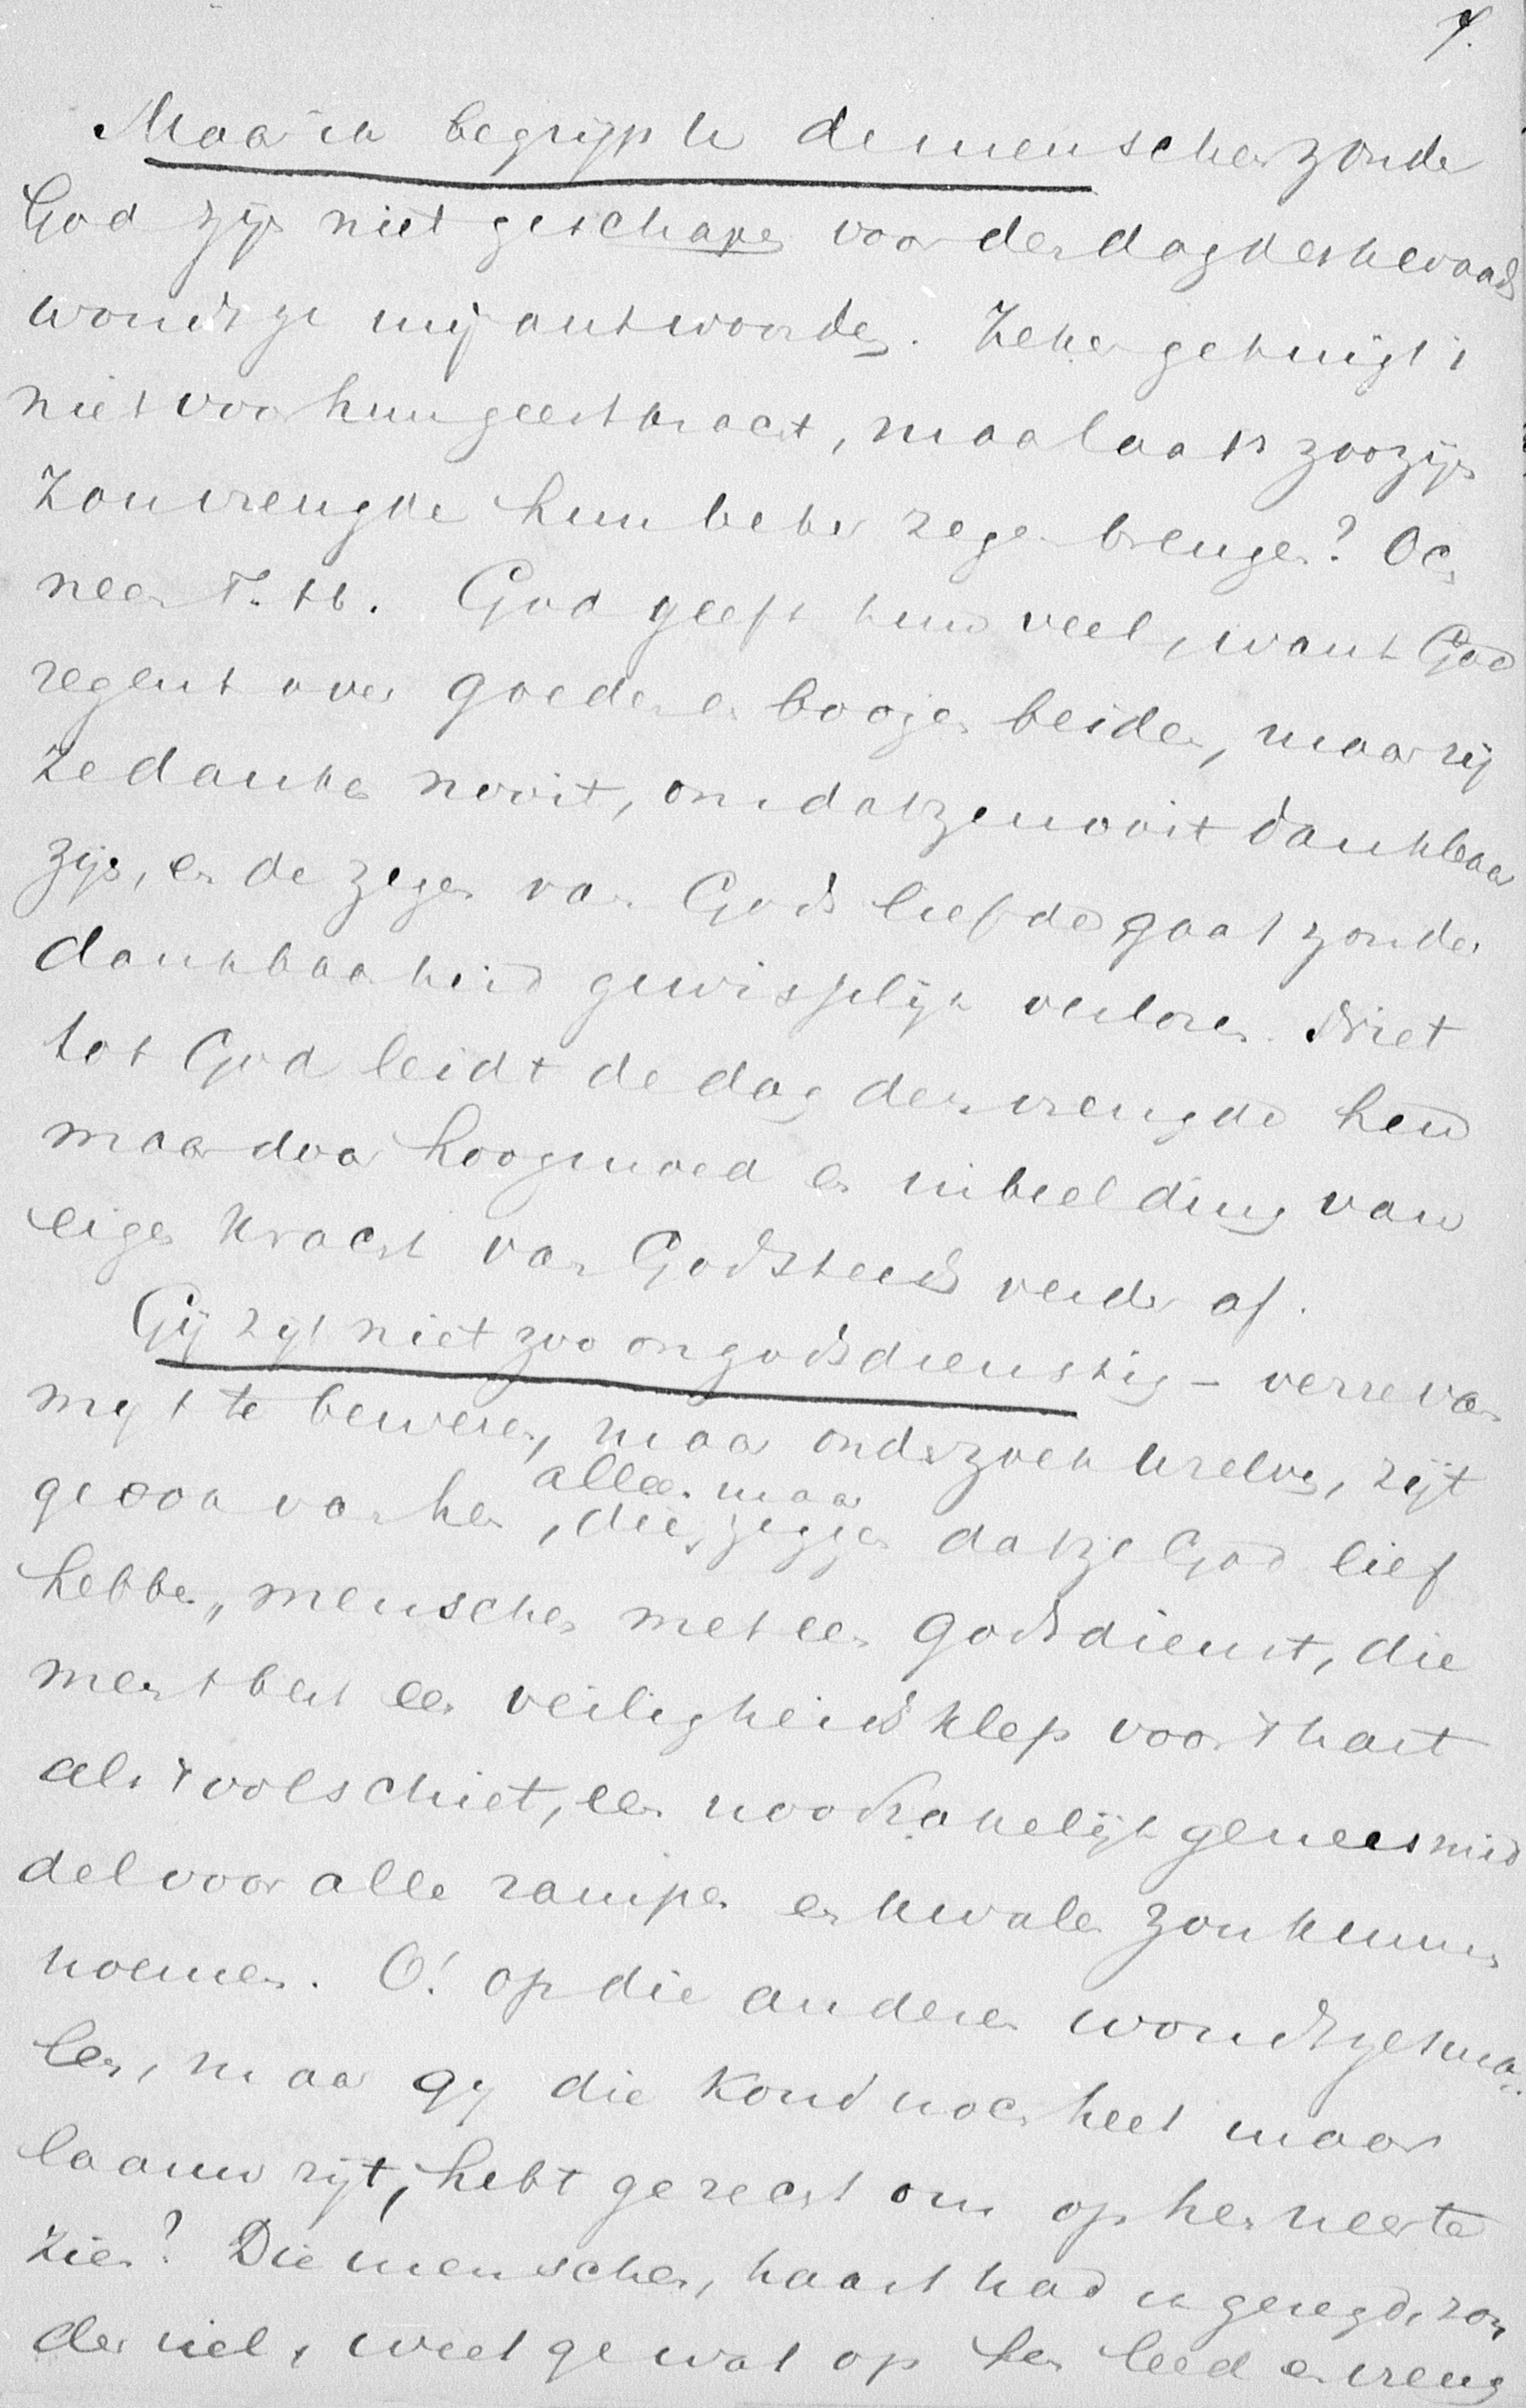 7.
Maar ik begrijp u de menschen zonder
God zijn niet geschapen voor den dag des kwaads
wondt ge mij antwoorden. Zeker getuigt 't
niet voor hun geestkracht, maar laat 't zoo zijn
Zou vreugde hun beter zegen brengen? Och
neen T. H. God geeft hun veel, want God
regent over goeden en boozen beiden, maar zij
ze danken nooit, omdat ze nooit dankbaar
zijn, en de zegen van Gods liefde gaat zonder
dankbaarheid gewisselijk verloren. Niet
tot God leidt de dag der vreugde hen
maar door hoogmoed en inbeelding van
eigen kracht van God steeds verder af.
Gij zijt niet zoo ongodsdienstig – verre van
mij 't te beweren, maar onderzoek u zelven, zijt
ge ook van hen, die alleen maar zeggen dat ze God lief
hebben, menschen met een godsdienst, die
men 't best een veiligheidsklep voor 't hart
als 't volschiet, een noodzakelijk geneesmid
del voor alle rampen en kwalen zou kunnen
noemen. O! op die anderen wondt ge sma-
len, maar gij die koud noch heet maar
laauw zijt, hebt ge recht om op hen neer te
zien? Die menschen, haast had ik gezegd, zon
der ziel, weet ge wat op hen leed en vreug